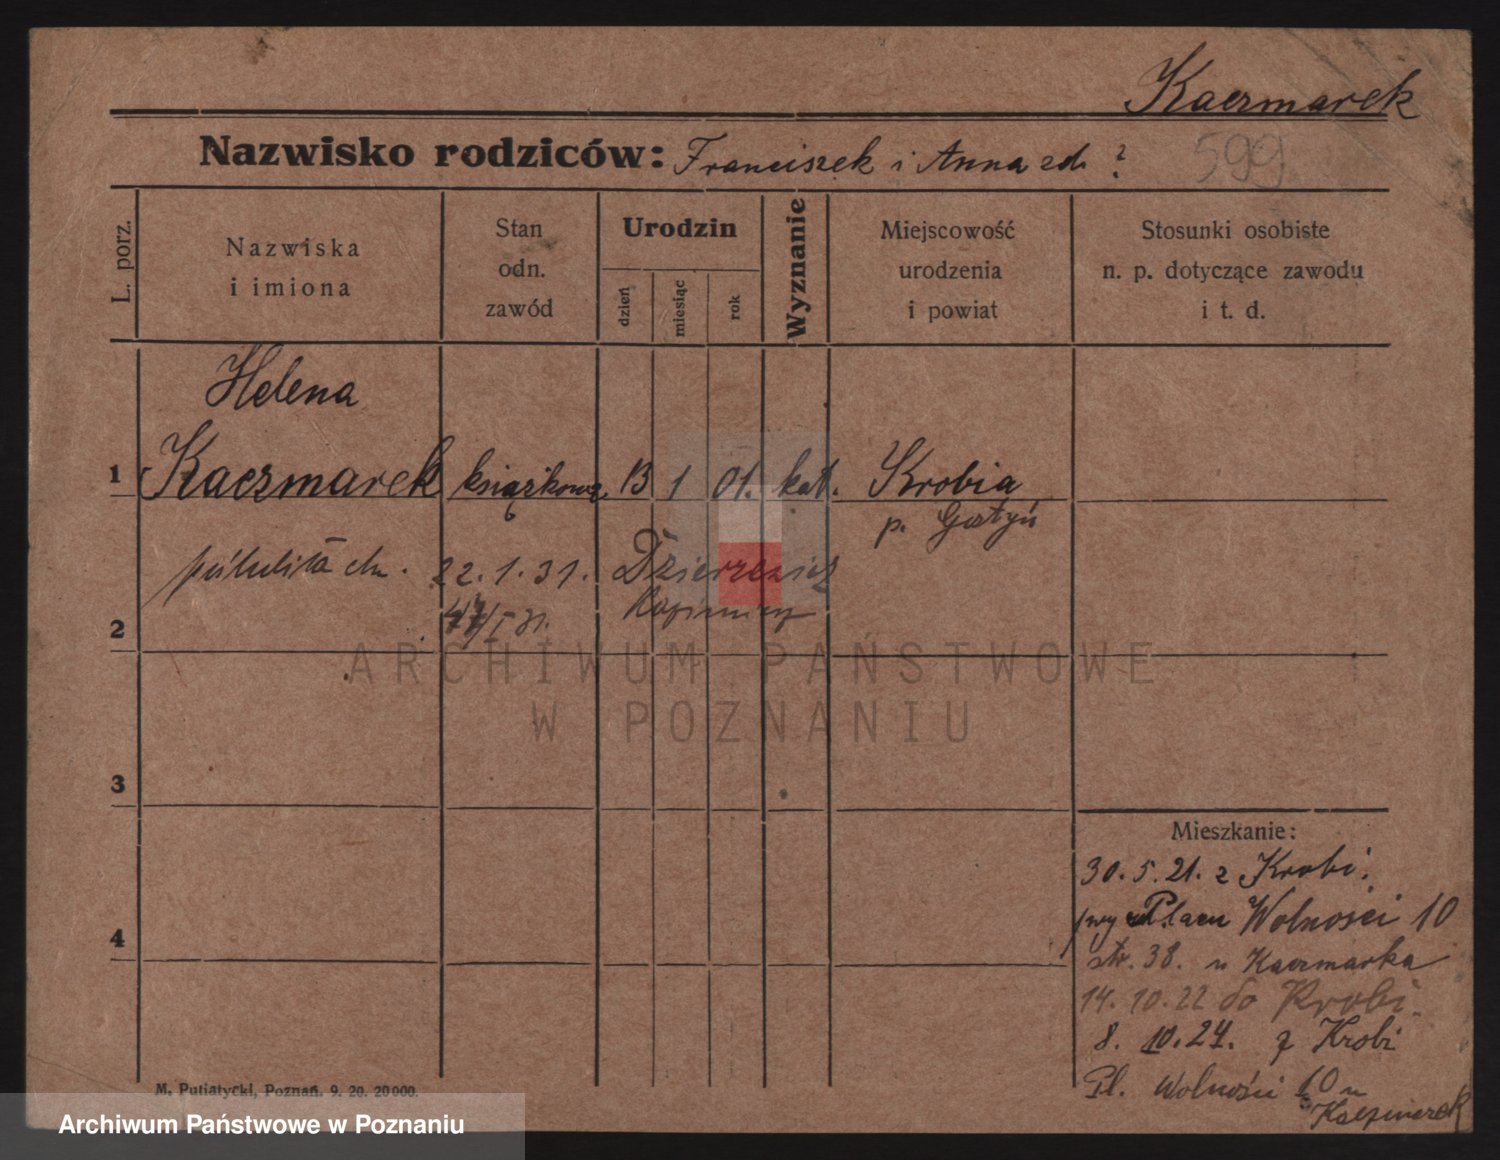 Kaczmarek
Nazwisko rodziców: Franciszek i Anna zd. ?
599
L. porz.
Nazwiska
i imiona
Stan
odn.
zawód
Urodzin
dzień
miesiąc
rok
Wyznanie
Miejscowość
urodzenia
i powiat
Stosunki osobiste
n. p. dotyczące zawodu
i t. d.
Helena
1 Kaczmarek książkowa 13 1 01. kat. Krobia
p. Gostyń
22.1.31.
2
ARCHIWUM PAŃSTWOWE
W POZNANIU
3
4
Mieszkanie:
30.5.21. z Krobi.
Placu Wolności 10
str. 38. u Kaczmarka
14.10.22 do Krobi.
8. 10.24. z Krobi
Pl. Wolności 10 u
Kaczmarek
M. Putiatycki, Poznań. 9. 20. 20000.
Archiwum Państwowe w Poznaniu